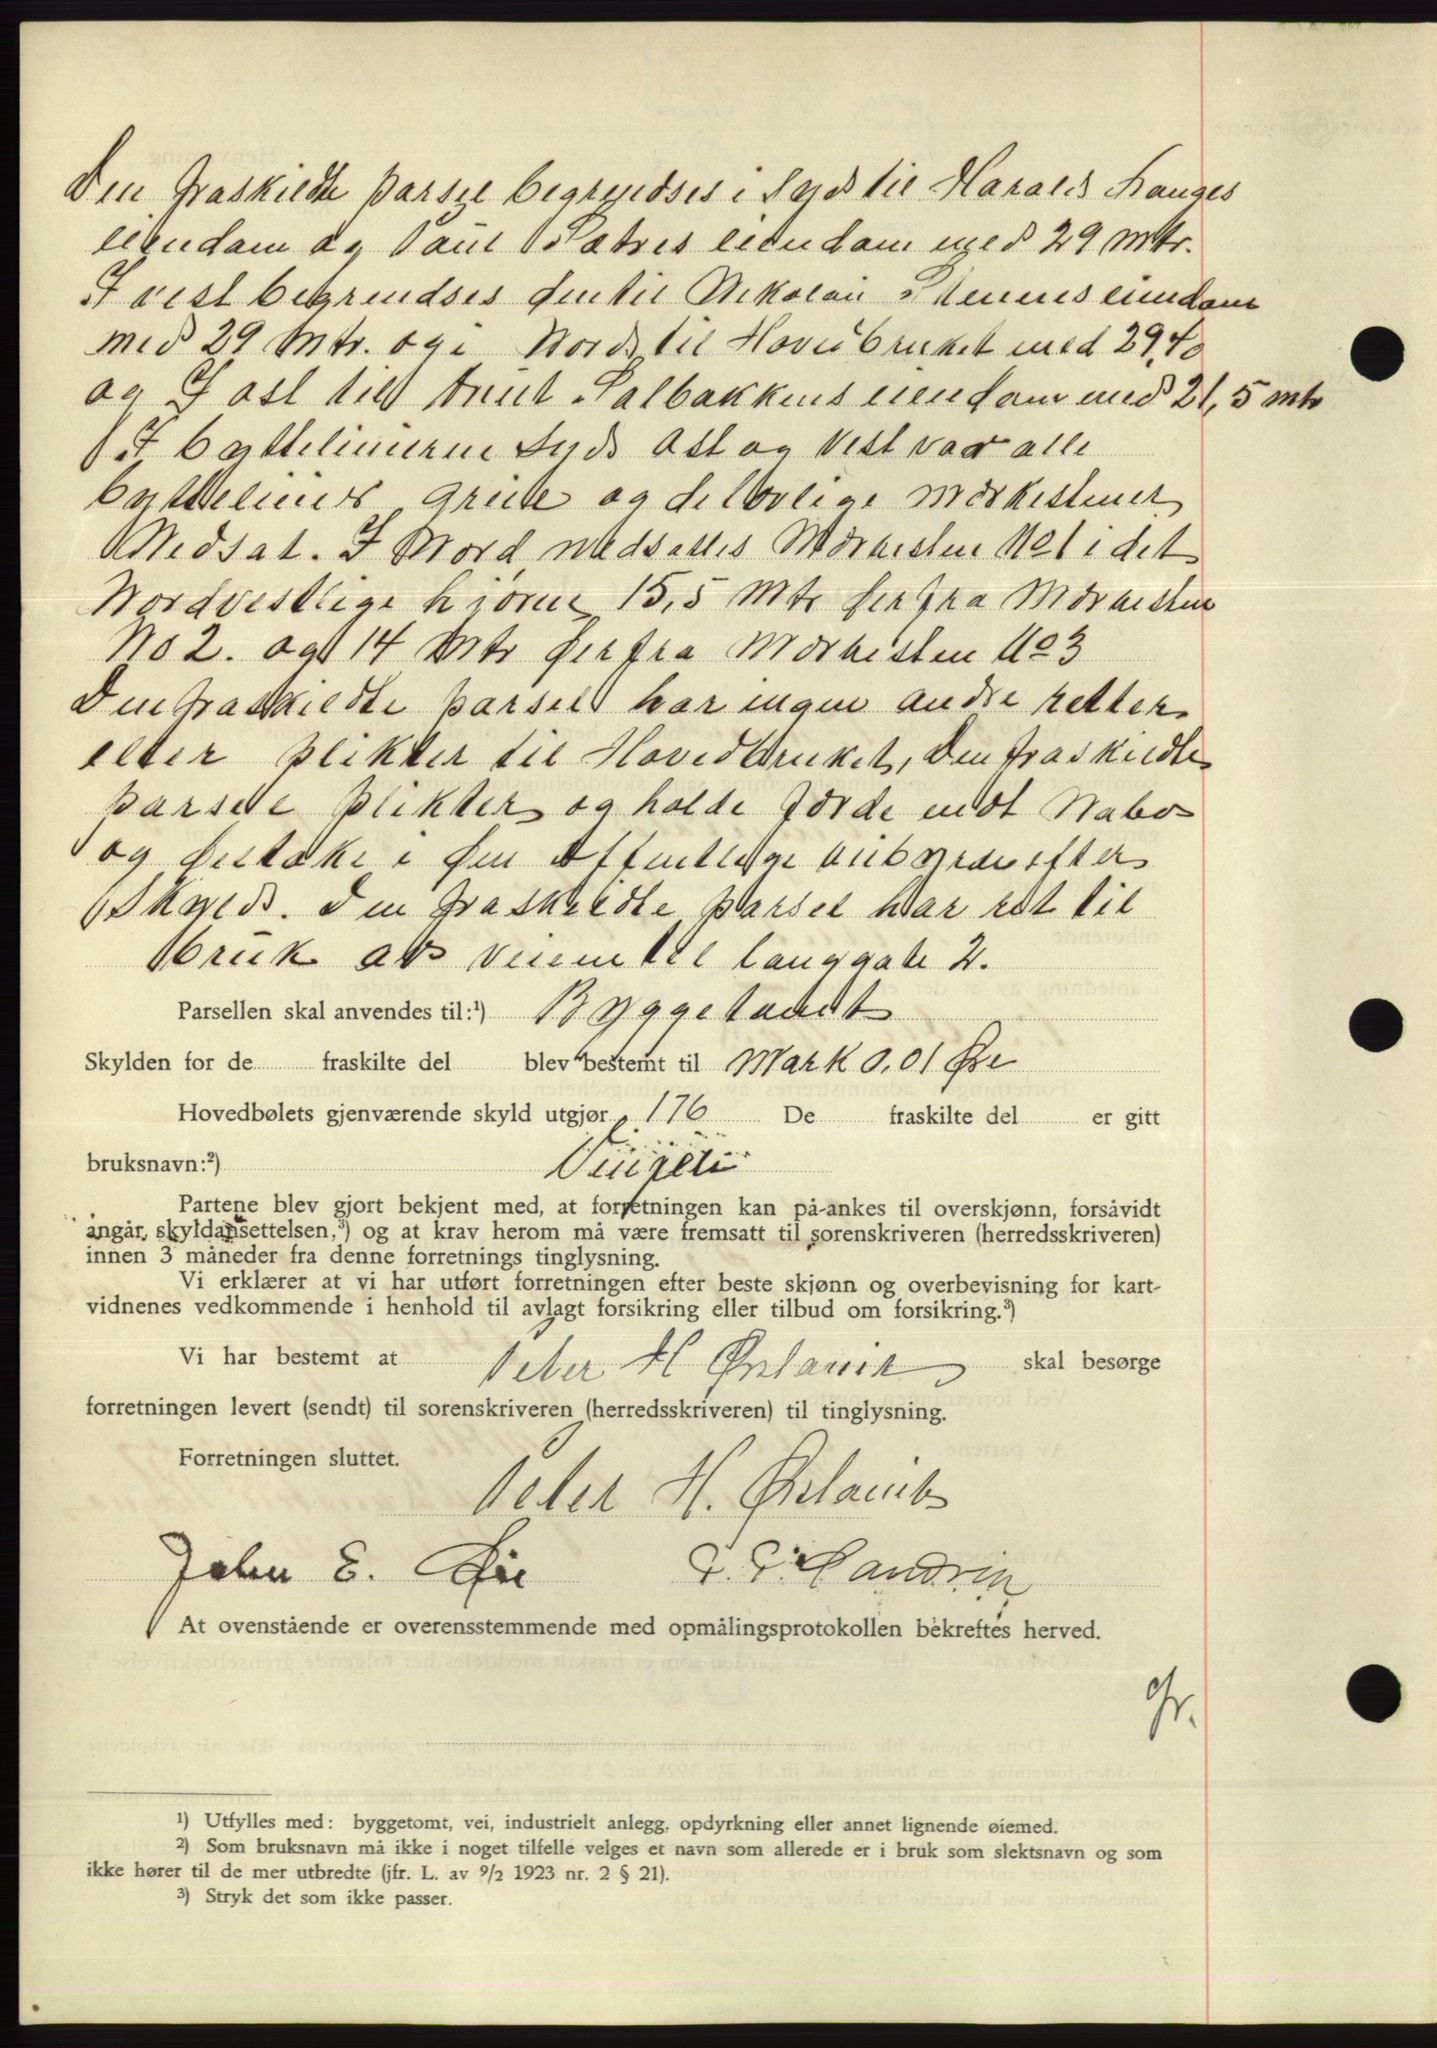 Den fraskildte parsel begrendses i Syd til Harald Hauges
eiendom og Paul Sætres eiendom med 29 mtr.
I vest begrendses den til Nikolai eiendom
med 29 Mtr. og i Nord til Hovedbruket med 29,40
og I ost til Knut Dalbakkens eiendom med 21,5 mtr
I byttelinierne Syd Ost og Vest var alle
byttelinier og delovlige merkestener
Nedsat. I Nord nedsattes Merkesten No 1 i det
Nordvestlige hjørne 15,5 Mtr derfra Merkesten
No 2. og 14 Mtr derfra Merkesten No 3
Den fraskildte parsel har ingen andre retter
eller plikter til Hovedbruket, Den fraskildte
parsel plikter og holde jerde mot Nabo
og deltake i den offentlige efter
Skyld. Den fraskildte parsel har ret til
bruk av veien til langgate 2.
Parsellen skal anvendes til:¹) Byggetomt
Skylden for de fraskilte del blev bestemt til Mark 0,01 Øre
Hovedbølets gjenværende skyld utgjør 176 De fraskilte del er gitt
bruksnavn:²)
Partene blev gjort bekjent med, at forretningen kan på-ankes til overskjønn, forsåvidt
angår skyldansettelsen,³) og at krav herom må være fremsatt til sorenskriveren (herredsskriveren)
innen 3 måneder fra denne forretnings tinglysning.
Vi erklærer at vi har utført forretningen efter beste skjønn og overbevisning for kart-
vidnenes vedkommende i henhold til avlagt forsikring eller tilbud om forsikring.³)
Vi har bestemt at Peter H Ørslavik skal besørge
forretningen levert (sendt) til sorenskriveren (herredsskriveren) til tinglysning.
Forretningen sluttet.
Peter H. Ørslavik
John E. Øie
At ovenstående er overensstemmende med opmålingsprotokollen bekreftes herved.
¹) Utfylles med: byggetomt, vei, industrielt anlegg, opdyrkning eller annet lignende øiemed.
²) Som bruksnavn må ikke i noget tilfelle velges et navn som allerede er i bruk som slektsnavn og som
ikke hører til de mer utbredte (jfr. L. av 9/2 1923 nr. 2 § 21).
³) Stryk det som ikke passer.